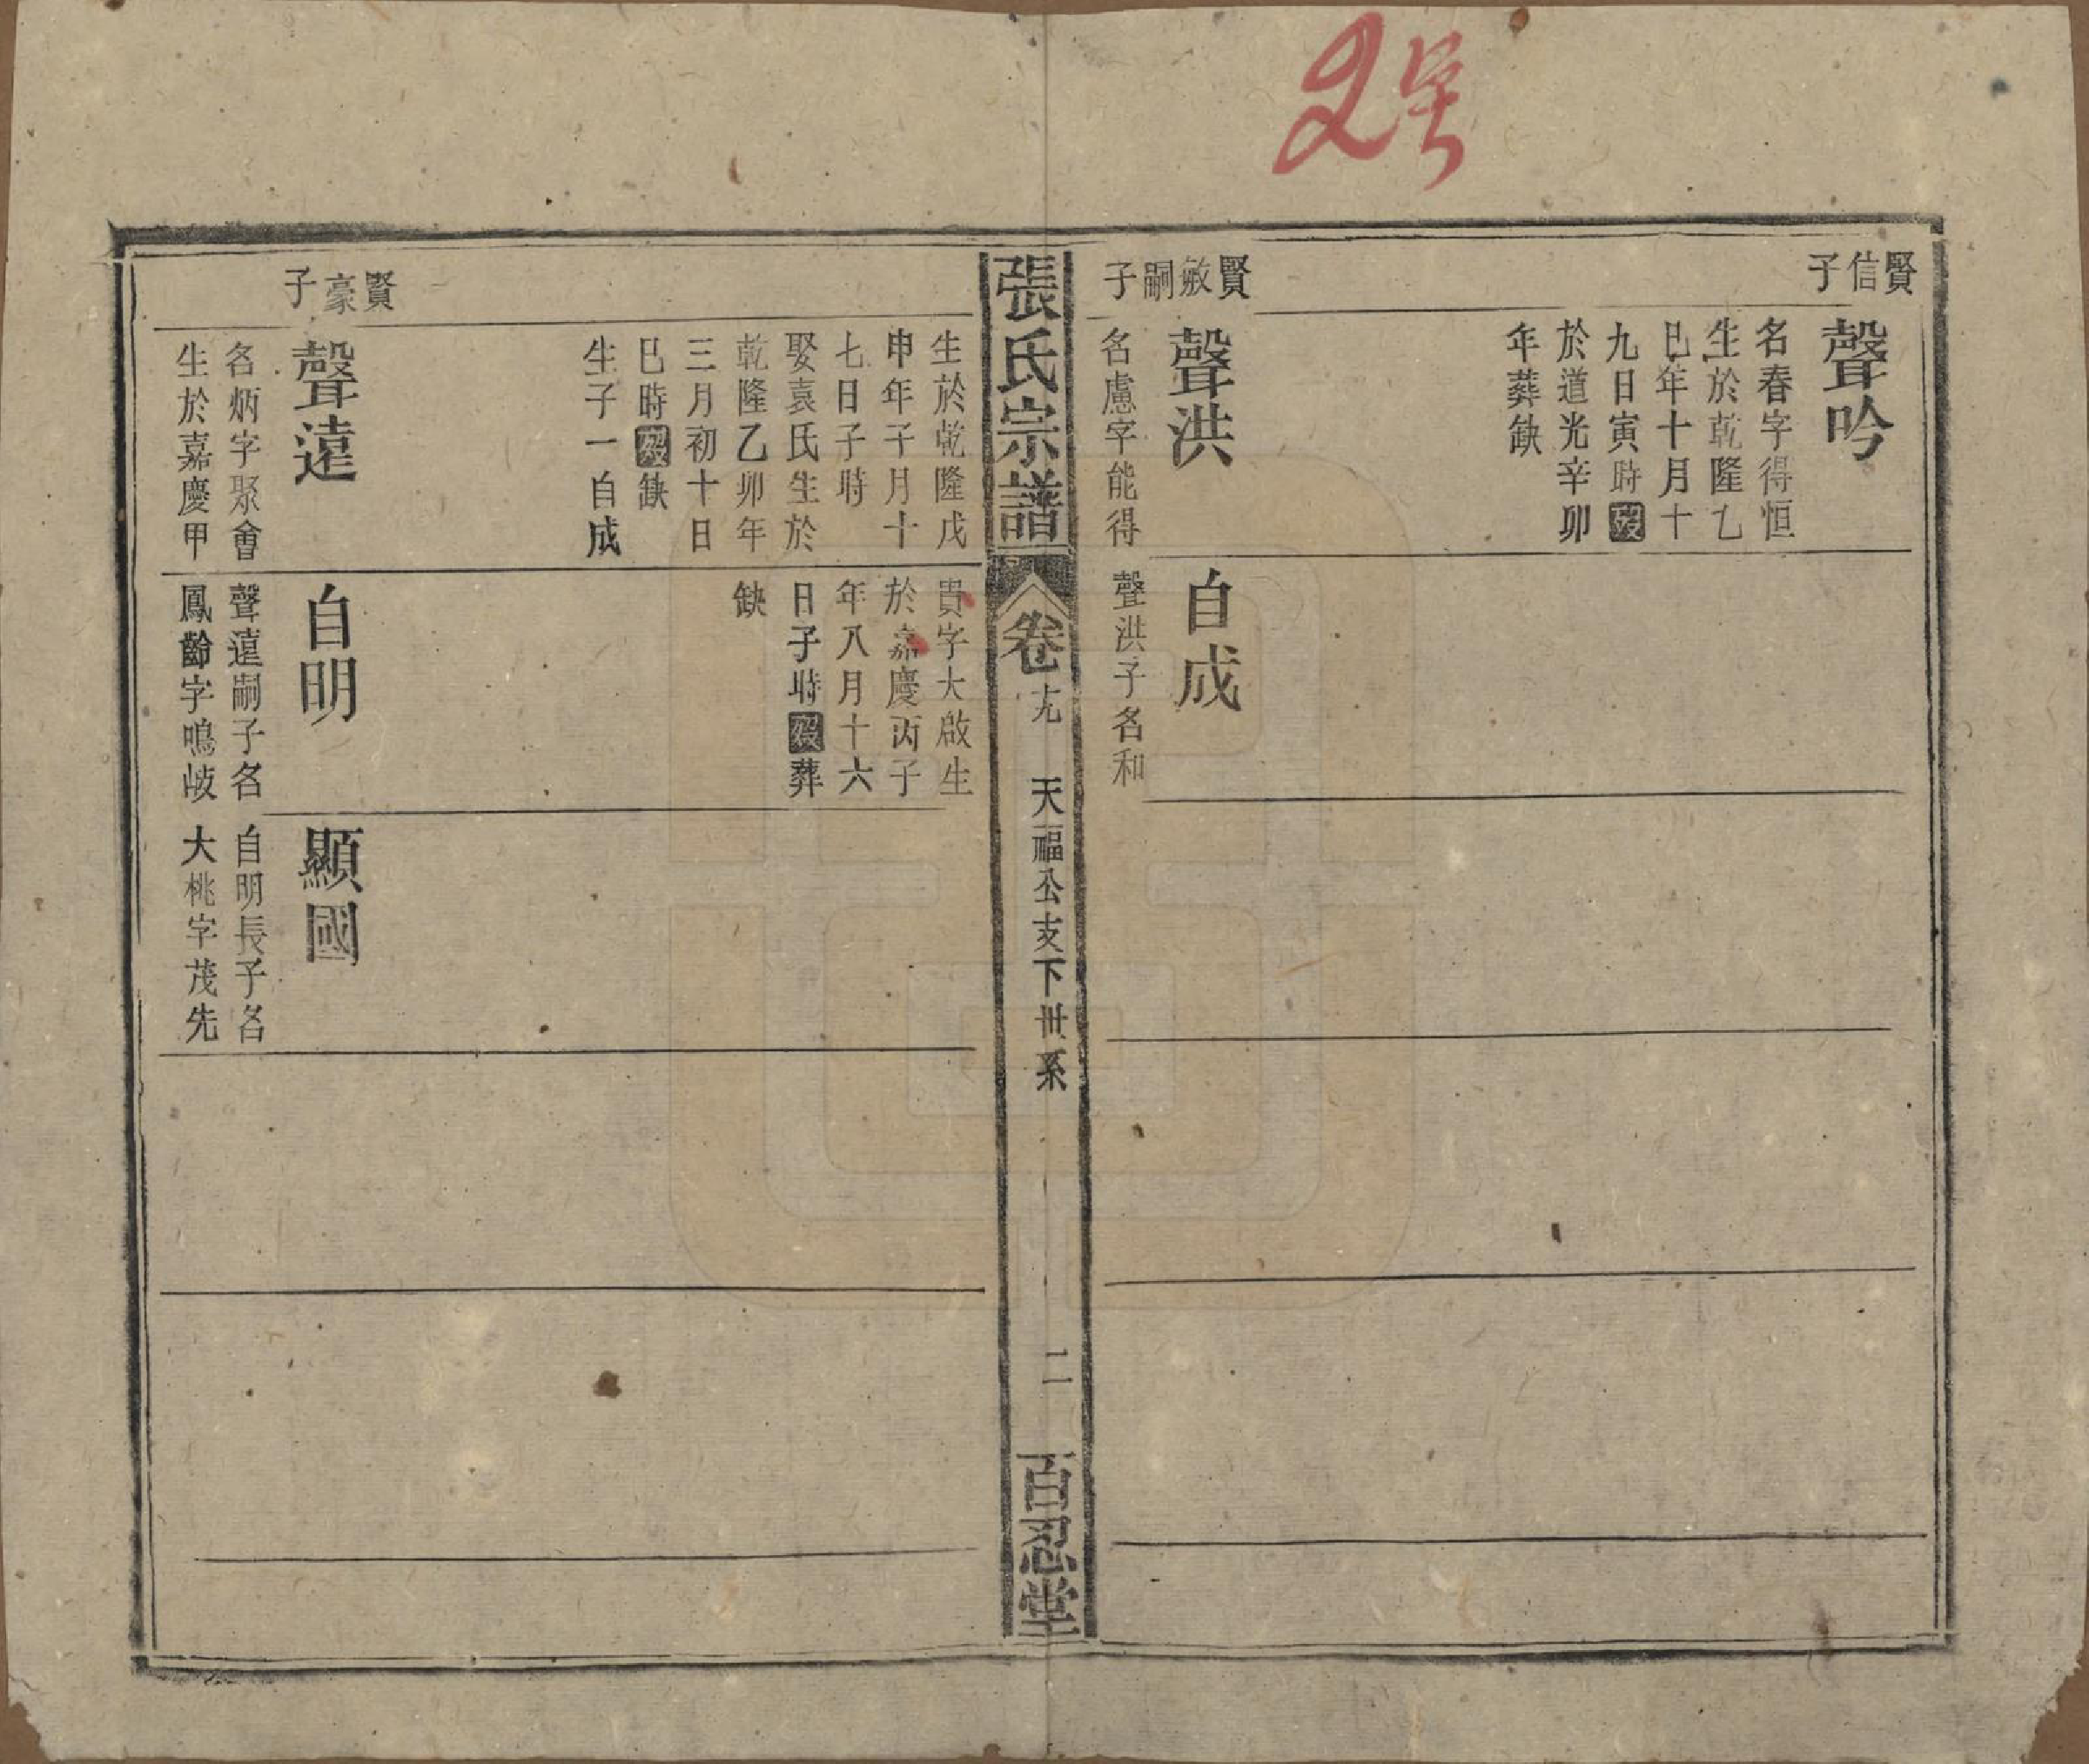 2号
賢信子
聲吟
名春字得恒
生於乾隆乙
巳年十月十
九日寅時歿
於道光辛卯
年葬缺
賢敏嗣子
聲洪
名慮字能得
自成
聲洪子名和
張氏宗譜
卷十九
天福公支下世系
二
百忍堂
生於乾隆戊
申年子月十
七日子時
娶袁氏生於
乾隆乙卯年
三月初十日
巳時歿缺
生子一自成
貴字大啟生
於嘉慶丙子
年八月十六
日子時歿葬
缺
賢豪子
聲遠
名炳字聚會
生於嘉慶甲
自明
聲遠嗣子名
鳳齡字鳴岐
顯國
自明長子名
大桃字茂先